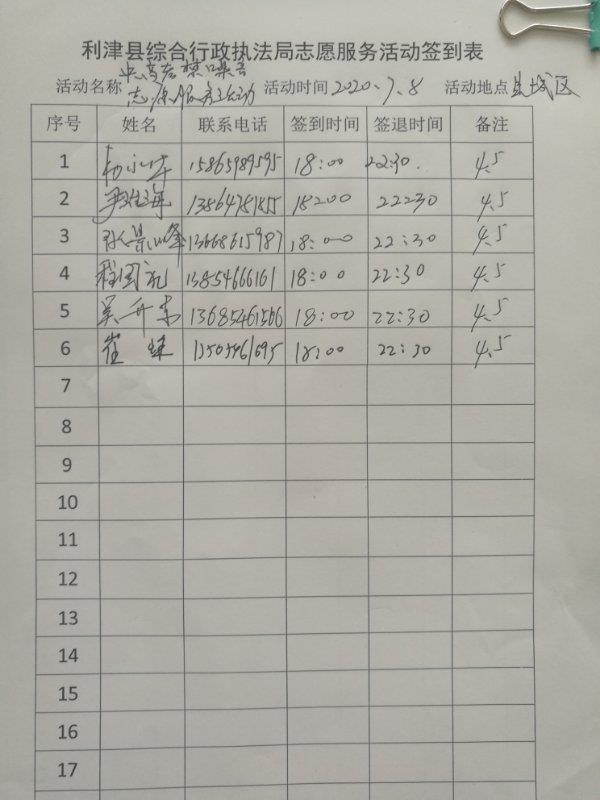 利津县综合行政执法局志愿服务活动签到表
活动名称 志愿服务活动 活动时间 2020.7.8 活动地点 县城区
序号 姓名 联系电话 签到时间 签退时间 备注
1 15865989595 18:00 22:30. 4.5
2 18:00 22:30 4.5
3 13668615987 18:00 22:30 4.5
4 程国礼 13854666161 18:00 22:30 4.5
5 吴升东 13685461566 18:00 22:30 4.5
6 崔 13505461695 18:00 22:30 4.5
7
8
9
10
11
12
13
14
15
16
17